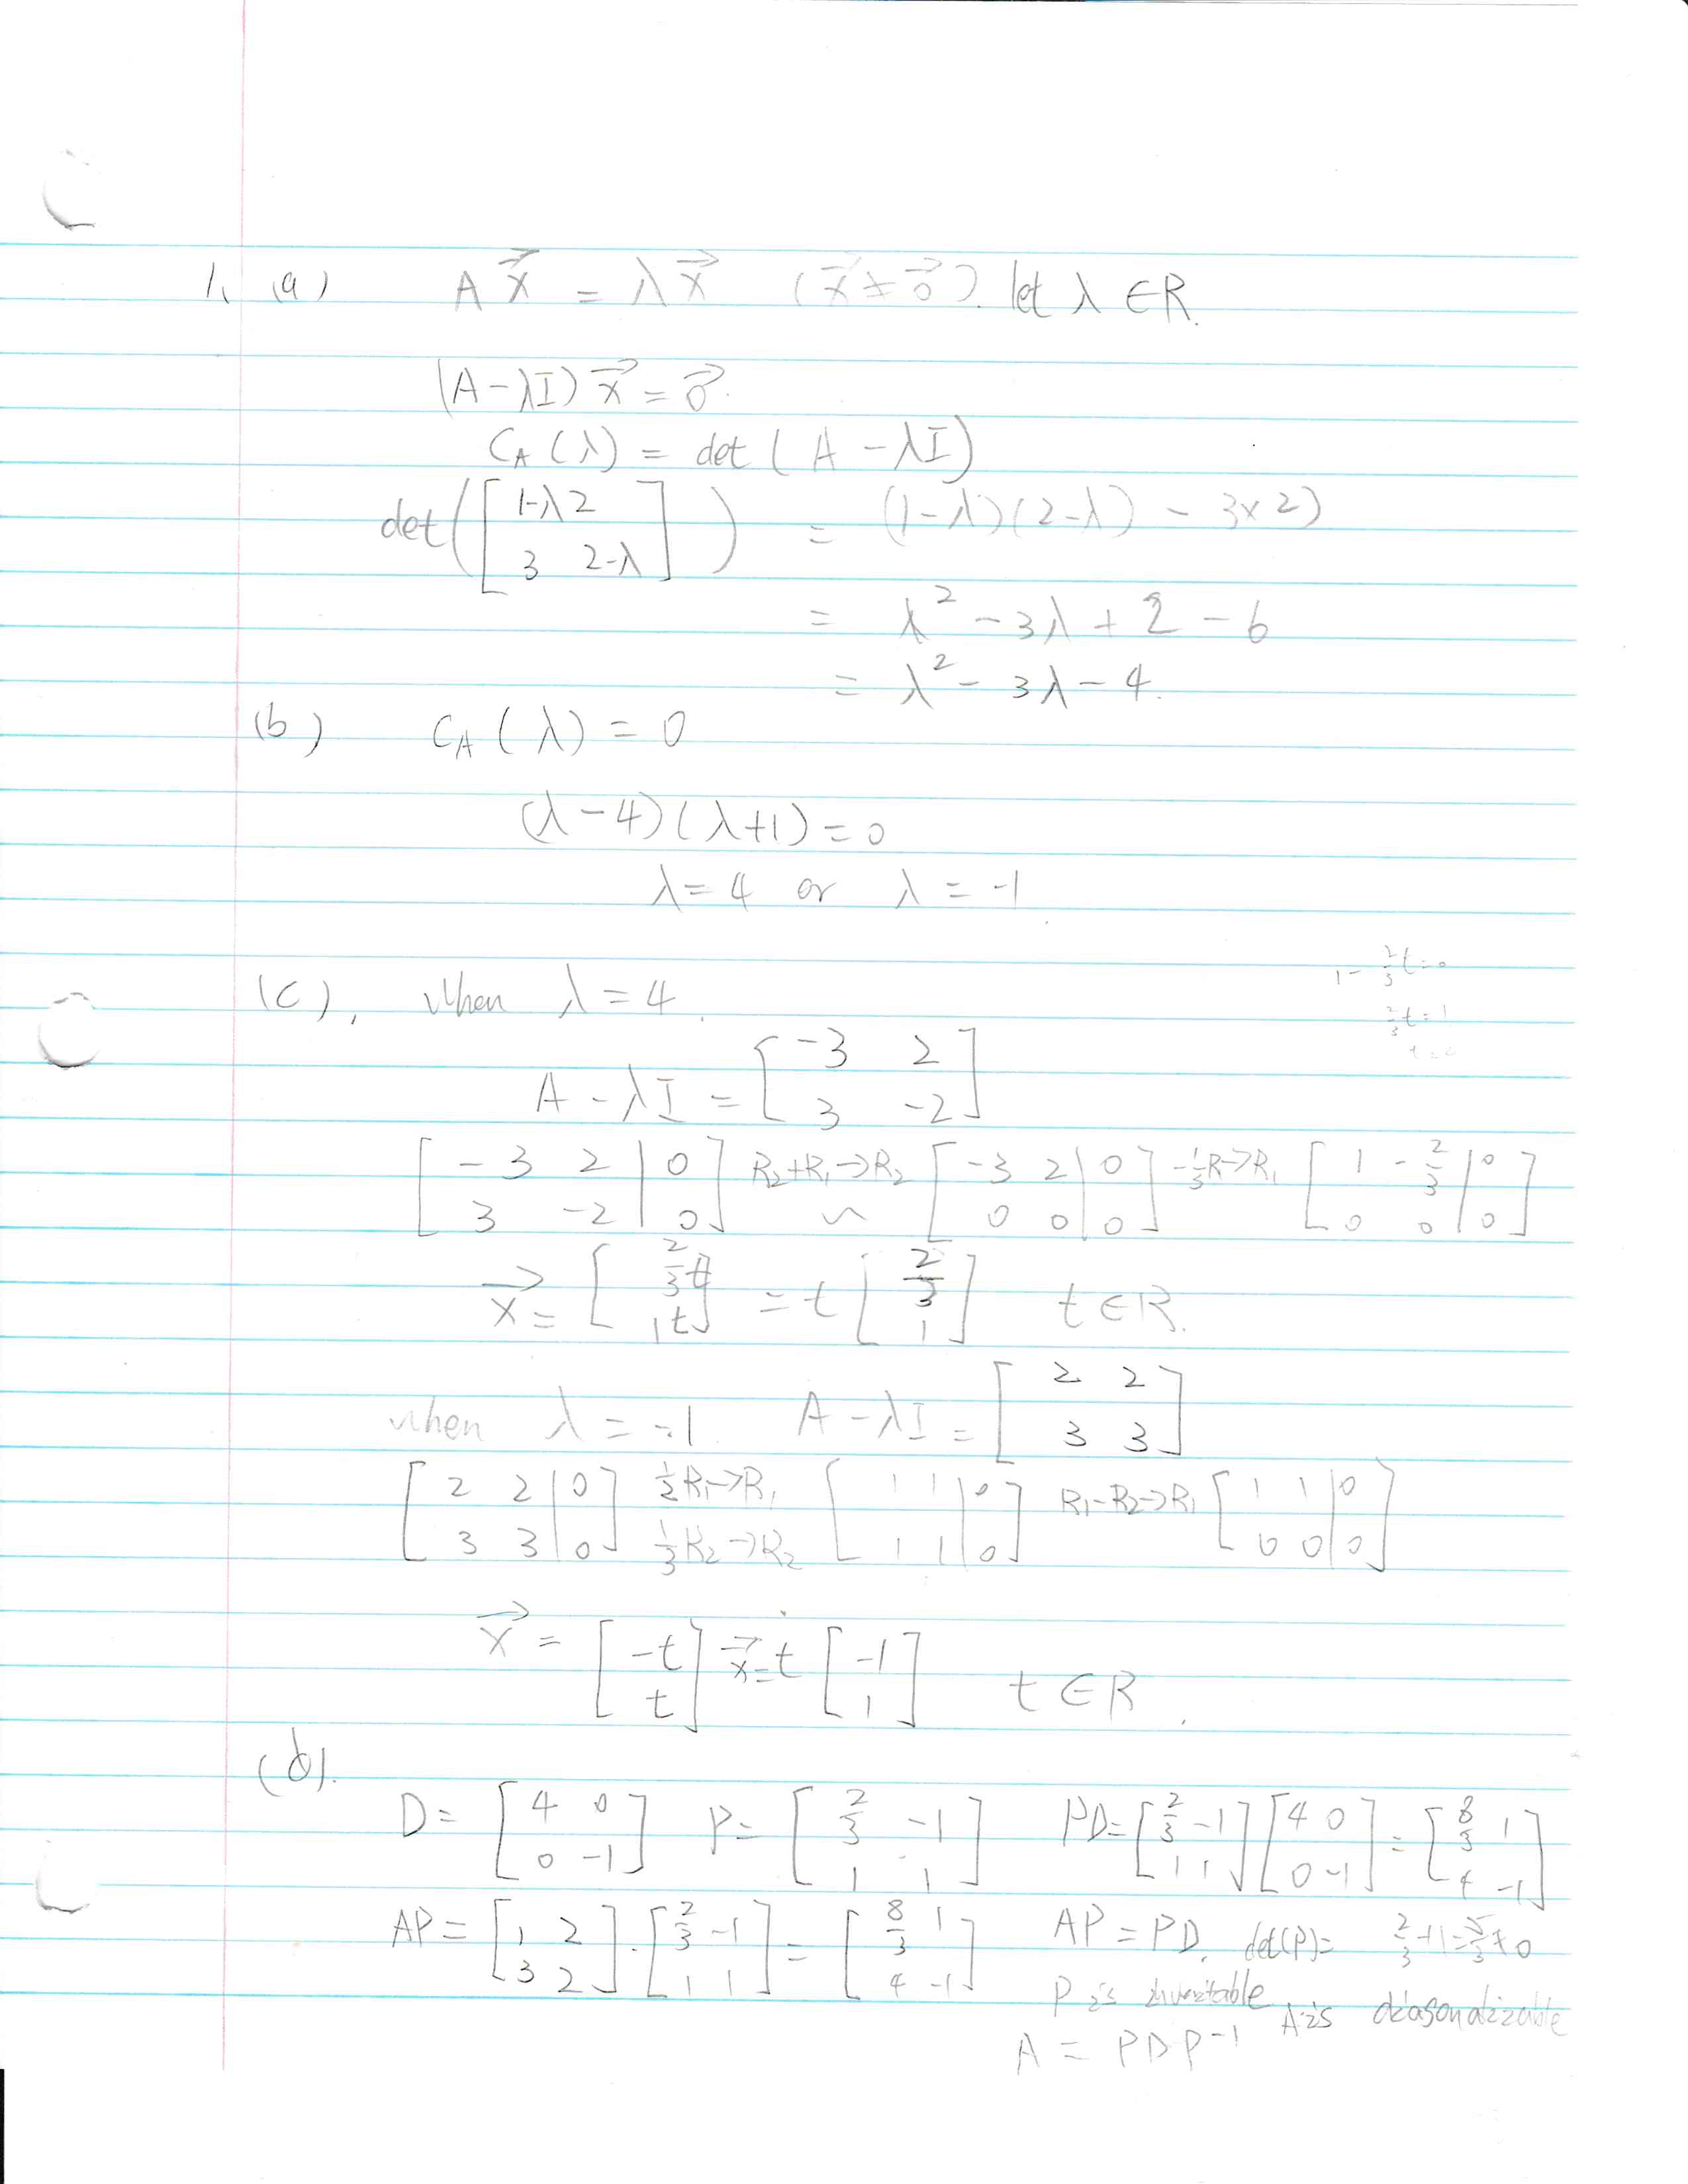 1. (a) A x⃗ = λ x⃗ (x⃗ ≠ 0⃗). let λ ∈ R.
(A - λI) x⃗ = 0⃗.
C_A (λ) = det ( A - λI)
det([1-λ 2; 3 2-λ]) = (1-λ)(2-λ) - 3×2)
= λ² - 3λ + 2 - 6
= λ² - 3λ - 4.
(b) C_A (λ) = 0
(λ - 4)(λ+1) = 0
λ = 4 or λ = -1
1 - 2/3 t = 0
(c), when λ = 4.
2/3 t = 1
A - λI = [-3 2; 3 -2]
[-3 2 | 0; 3 -2 | 0] R₂+R₁→R₂ ~ [-3 2 | 0; 0 0 | 0] -1/3R→R₁ [1 -2/3 | 0; 0 0 | 0]
x⃗ = [2/3 t; 1t] = t [2/3; 1] t ∈ R.
when λ = -1 A - λI = [2 2; 3 3]
[2 2 | 0; 3 3 | 0] 1/2 R₁→R₁ 1/3 R₂→R₂ [1 1 | 0; 1 1 | 0] R₁-R₂→R₁ [1 1 | 0; 0 0 | 0]
x⃗ = [-t; t] x⃗ = t [-1; 1] t ∈ R.
(d).
D = [4 0; 0 -1] P = [2/3 -1; 1 1] PD = [2/3 -1; 1 1] [4 0; 0 -1] = [8/3 1; 4 -1]
AP = [1 2; 3 2] · [2/3 -1; 1 1] = [8/3 1; 4 -1] AP = PD. det(P) = 2/3+1=5/3≠0
P is invertable A is diagonalizable
A = PDP⁻¹